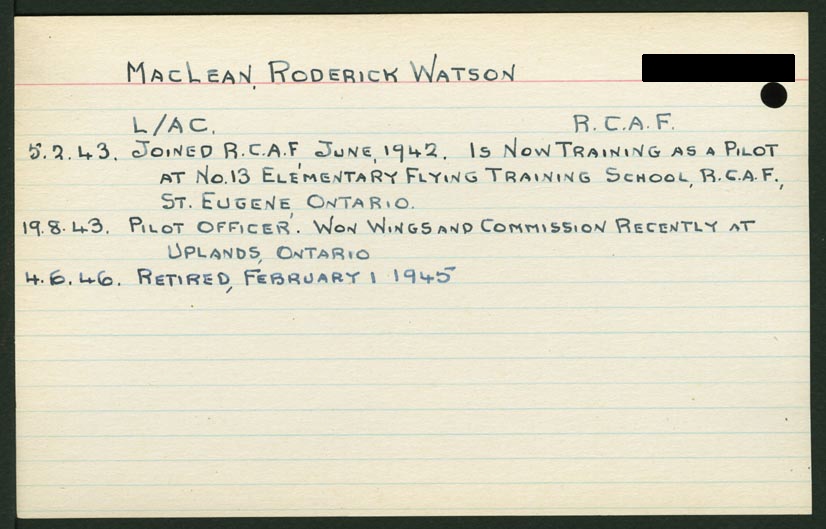 MacLean, Roderick Watson
L/AC. R.C.A.F.
5.2.43. Joined R.C.A.F, June, 1942. Is Now Training as a Pilot
at No.13 Elementary Flying Training School, R.C.A.F.,
St. Eugene, Ontario.
19.8.43. Pilot Officer. Won Wings and Commission Recently at
Uplands, Ontario
4.6.46. Retired, February 1 1945